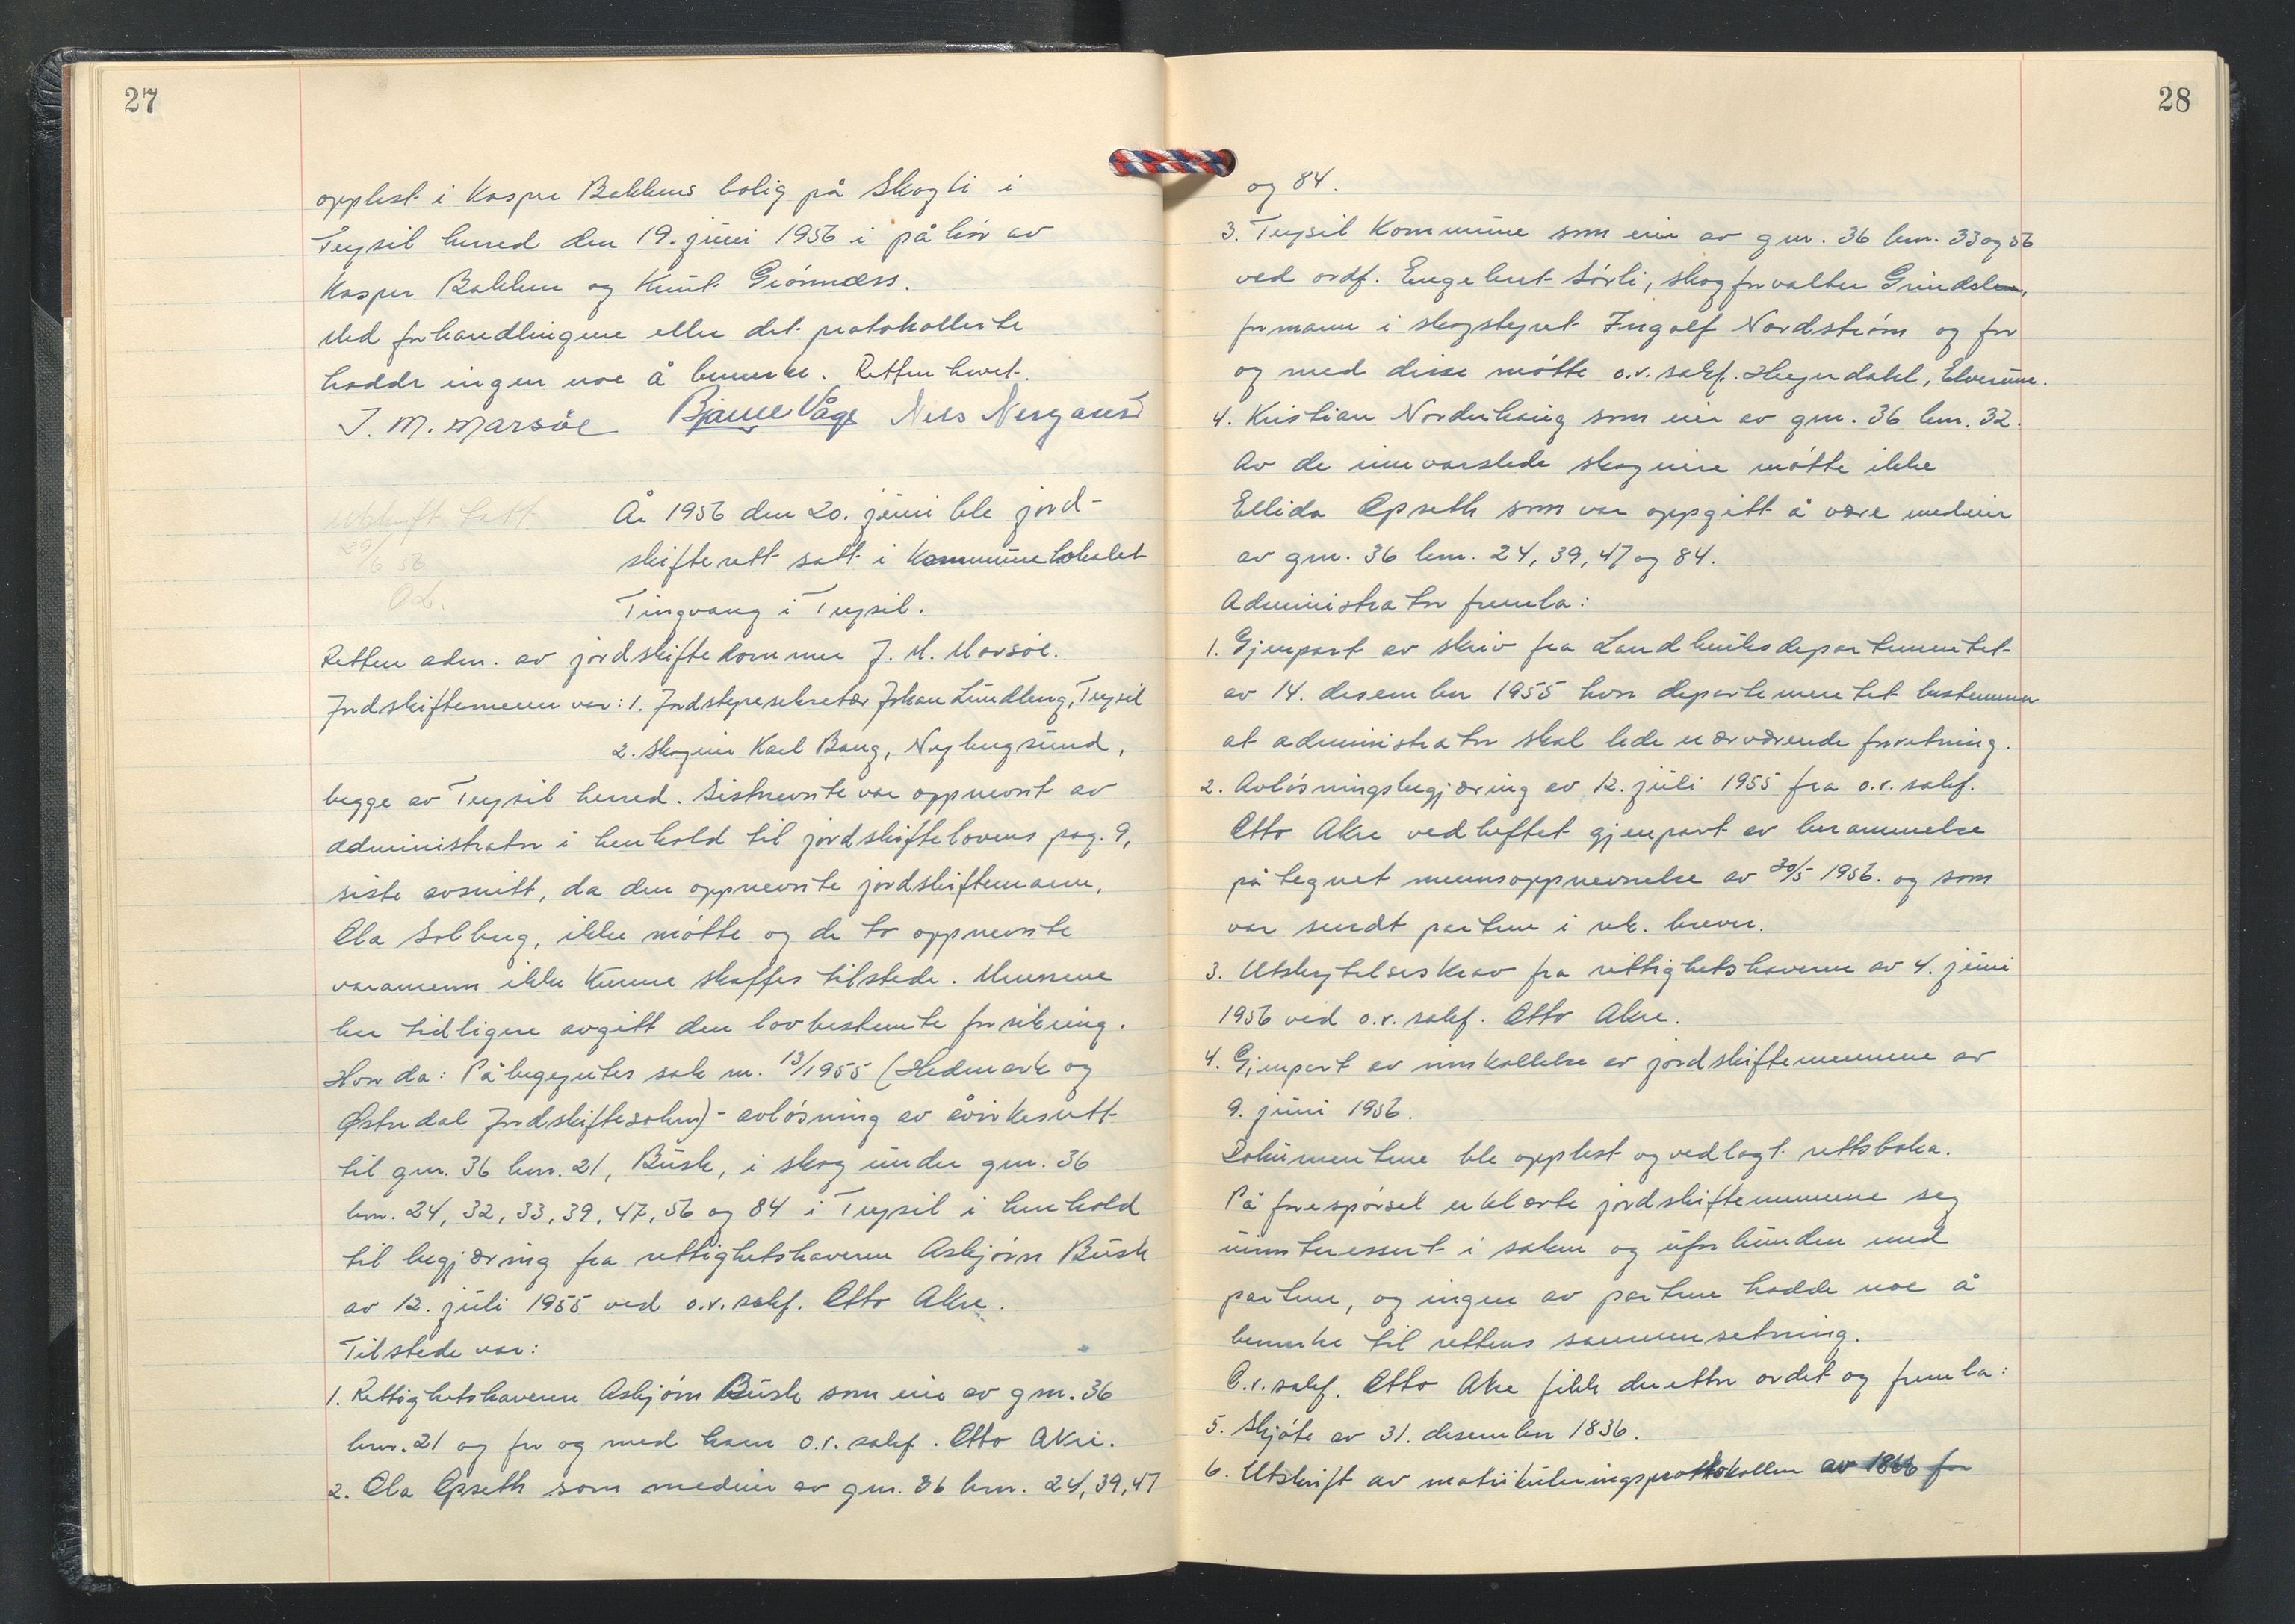 27
opplest i Kasper Bakkens bolig på Skogli i
Trysil herred den 19. juni 1956 i påhør av
Kasper Bakken og Knut Grønnæss.
Ved forhandlingene eller det protokollerte
hadde ingen noe å bemerke. Retten hevet.
J. M. Marsøe Bjarne Våge Nils Nergaard
Utskrift tatt
29/6 56
O.L.
År 1956 den 20. juni ble jord-
skifterett satt i Kommunelokalet
Tingvang i Trysil.
Retten adm. av jordskiftedommer J. M. Marsøe.
Jordskiftemenn var: 1. Jordstyresekretær Johan Lundberg, Trysil
2. Skogeier Karl Bang, Nybergsund,
begge av Trysil herred. Sistnevnte var oppnevnt av
administrator i henhold til jordskiftelovens pag. 9,
siste avsnitt, da den oppnevnte jordskiftemann,
Ola Solberg, ikke møtte og de to oppnevnte
varamenn ikke kunne skaffes tilstede. Mennene
her tidligere avgitt den lovbestemte forsikring.
Hvor da: Påbegyntes sak nr. 13/1955 (Hedmark og
Østerdal Jordskiftesokn) - avløsning av åvirkesrett
til gnr. 36 bnr. 21, Busk, i skog under gnr. 36
bnr. 24, 32, 33, 39, 47, 56 og 84 i Trysil i henhold
til begjæring fra rettighetshaveren Asbjørn Busk
av 12. juli 1955 ved o.r.sakf. Otto Akre.
Tilstede var:
1. Rettighetshaveren Asbjørn Busk som eier av gnr. 36
bnr. 21 og for og med ham o.r. sakf. Otto Akre.
2. Ola Opseth som medeier av gnr. 36 bnr. 24, 39, 47
28
og 84.
3. Trysil Kommune som eier av gnr. 36 bnr. 33 og 56
ved ordf. Engebret Sørli, skogforvalter Grindalen,
formann i skogstyret Ingolf Nordstrøm og for
og med disse møtte o.r. sakf. Heyerdahl, Elverum.
4. Kristian Norderhaug som eier av gnr. 36 bnr. 32.
Av de innvarslede skogeiere møtte ikke
Ellida Opseth som var oppgitt å være medeier
av gnr. 36 bnr. 24, 39, 47 og 84.
Administrator fremla:
1. Gjenpart av skriv fra Landbruksdepartementet
av 14. desember 1955 hvor departementet bestemmer
at administrator skal lede nærværende forretning.
2. Avløsningsbegjæring av 12. juli 1955 fra o.r. sakf.
Otto Akre vedheftet gjenpart av berammelse
påtegnet mennsoppnevnelse av 30/5 1956. og som
var sendt partene i rek. brever.
3. Utskytelseskrav fra rettighetshaveren av 4. juni
1956 ved o.r. sakf. Otto Akre.
4. Gjenpart av innkallelse av jordskiftemennene av
9. juni 1956.
Dokumentene ble opplest og vedlagt rettsboka.
På forespørsel erklærte jordskiftemennene seg
uinteressert i saken og uforbunden med
partene, og ingen av partene hadde noe å
bemerke til rettens sammensetning.
O.r.sakf. Otto Akre fikk deretter ordet og fremla:
5. Skjøte av 31. desember 1836.
6. Utskrift av matrikuleringsprotokollen av 1866 for